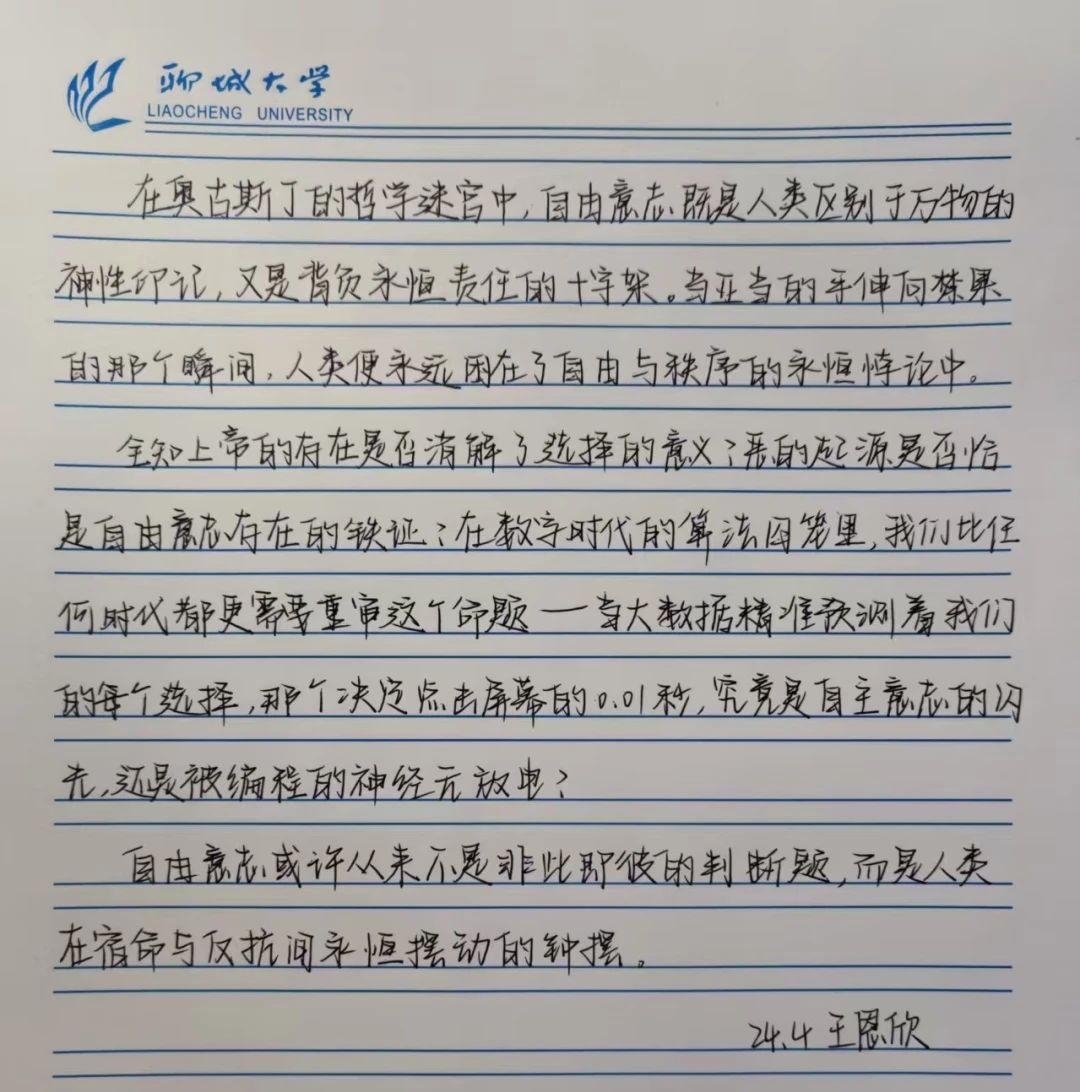 聊城大学
LIAOCHENG UNIVERSITY
在奥古斯丁的哲学迷宫中，自由意志既是人类区别于万物的
神性印记，又是背负永恒责任的十字架。当亚当的手伸向禁果
的那个瞬间，人类便永远困在了自由与秩序的永恒悖论中。
全知上帝的存在是否消解了选择的意义？恶的起源是否恰
是自由意志存在的铁证？在数字时代的算法囚笼里，我们比任
何时代都更需要重审这个命题—当大数据精准预测着我们
的每个选择，那个决定点击屏幕的0.01秒，究竟是自主意志的闪
光，还是被编程的神经元放电？
自由意志或许从来不是非此即彼的判断题，而是人类
在宿命与反抗间永恒摆动的钟摆。
24.4 王恩欣